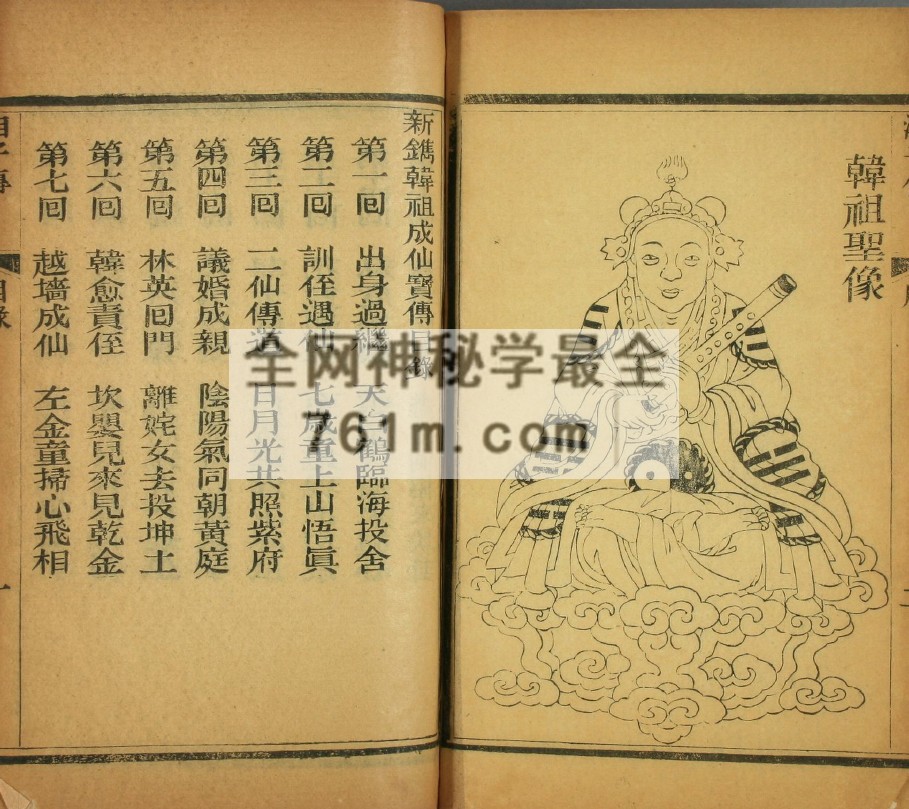 韓祖聖像
新鐫韓祖成仙寶傳目錄
第一回 出身過繼 天白鶴臨海投舍
第二回 訓侄遇仙 七歲童上山悟眞
第三回 二仙傳道 日月光共照紫府
第四回 議婚成親 陰陽氣同朝黃庭
第五回 林英回門 離姹女去投坤土
第六回 韓愈責侄 坎嬰兒來見乾金
第七回 越墻成仙 左金童掃心飛相
全网神秘学最全
761m.com